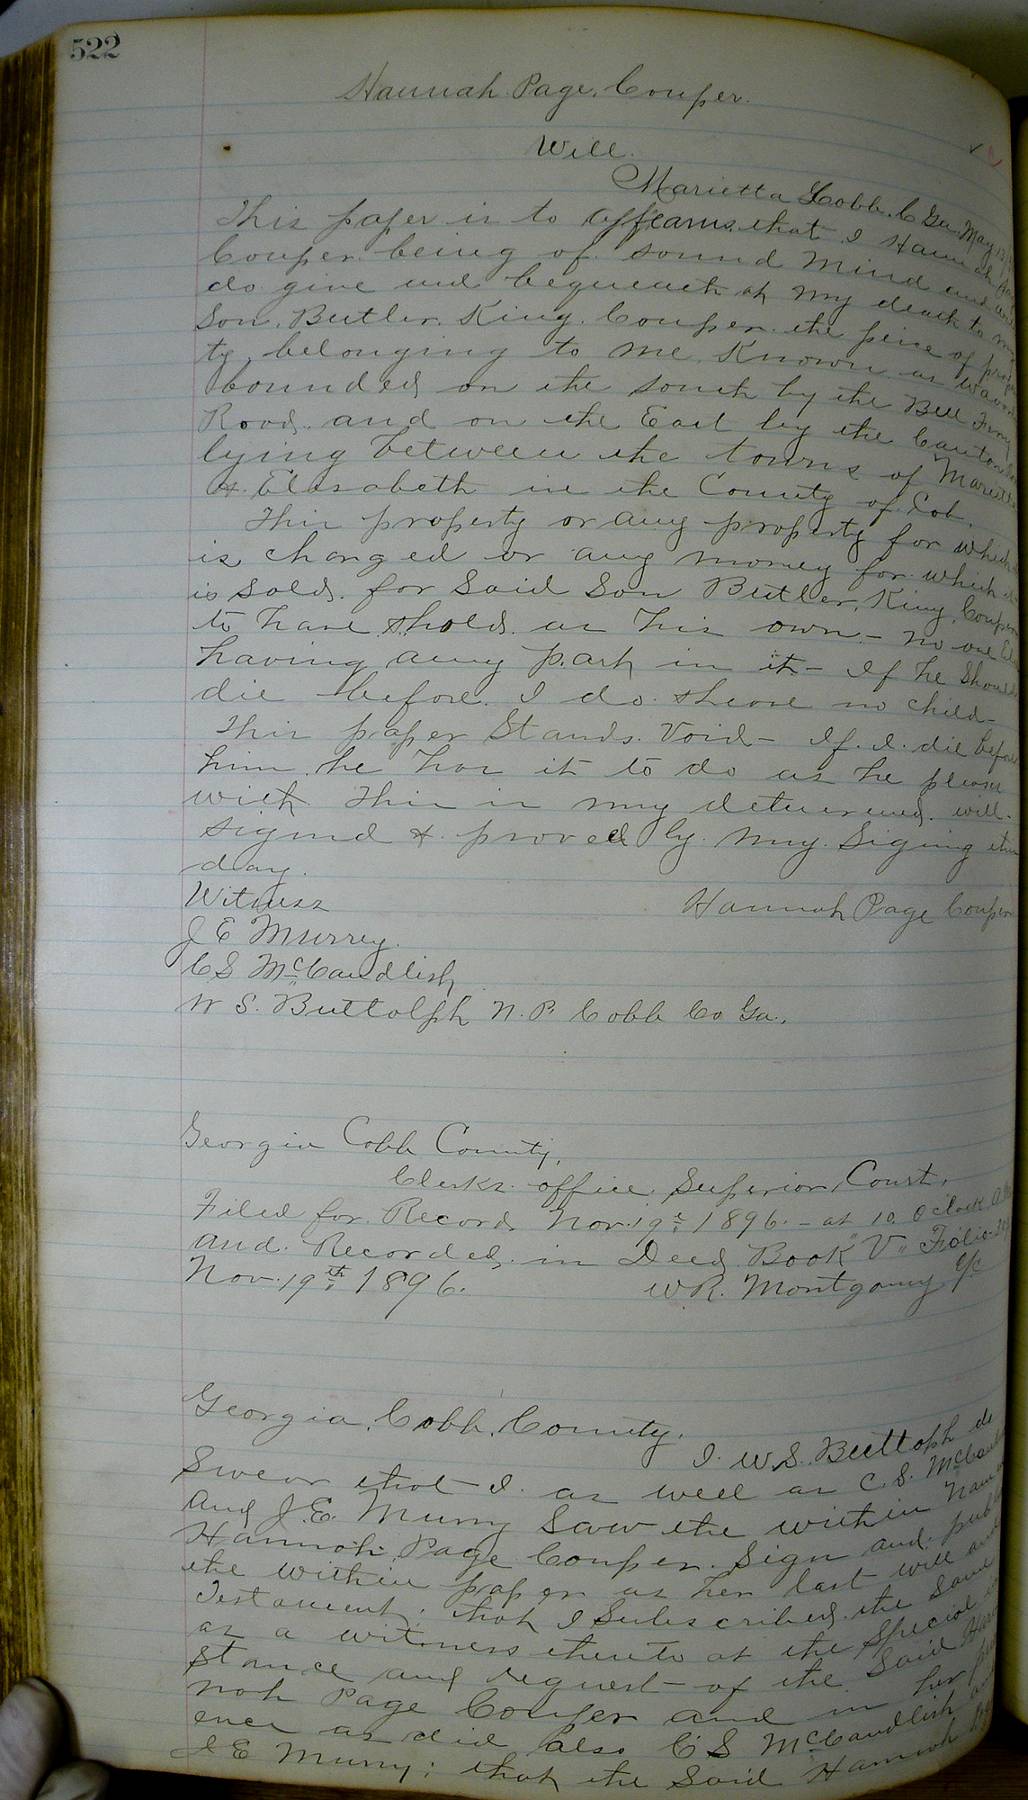 522
Hannah Page Couper.
Will.
Marietta Cobb. C Ga. May
This paper is to appears that I Hannah
Couper being of sound mind and
do give and bequeath at my death to my
Son. Butler. King. Couper. the peice of
ty belonging to me Known as
bounded on the south by the Bell Ferry
Road. and on the East by the Canton
lying between the towns of Marietta
& Elizabeth in the County of Cob.
This property or any property for which
is changed or any money for which it
is sold. for Said Son Butler. King Couper
to have & hold as his own - no one
having any part in it - If he Should
die before I do & leave no child -
This paper Stands Void - If I die before
him he has it to do as he please
with This is my determined will.
Signd & proved by my Siging this
day.
Witness Hannah Page Couper
J E Murrey.
C S McCandlish
W S. Buttolph N. P. Cobb Co Ga.
Georgia Cobb County,
Clerks office Superior Court.
Filed for Record Nov. 19th 1896 - at 10 Oclock A
and Recorded in Deed Book "V" Folio
Nov. 19th 1896. W R. Montgomy
Georgia, Cobb, County.
I. W. S. Buttolph do
Swear that I as well as C. S.
and J. E. Murry Saw the within
Hannah Page Couper. Sign and
the within paper as her last will and
Testament; that I Subscribed the Same
as a witness thereto at the Special in
stance and request of the Said Han
nah Page Couper and in her
ence as did also C S McCandlish and
J E Murry; that the Said Hannah